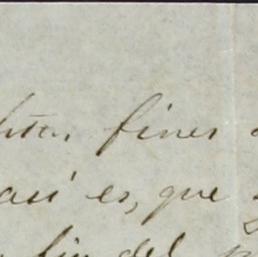 fines
así es, que
fin del